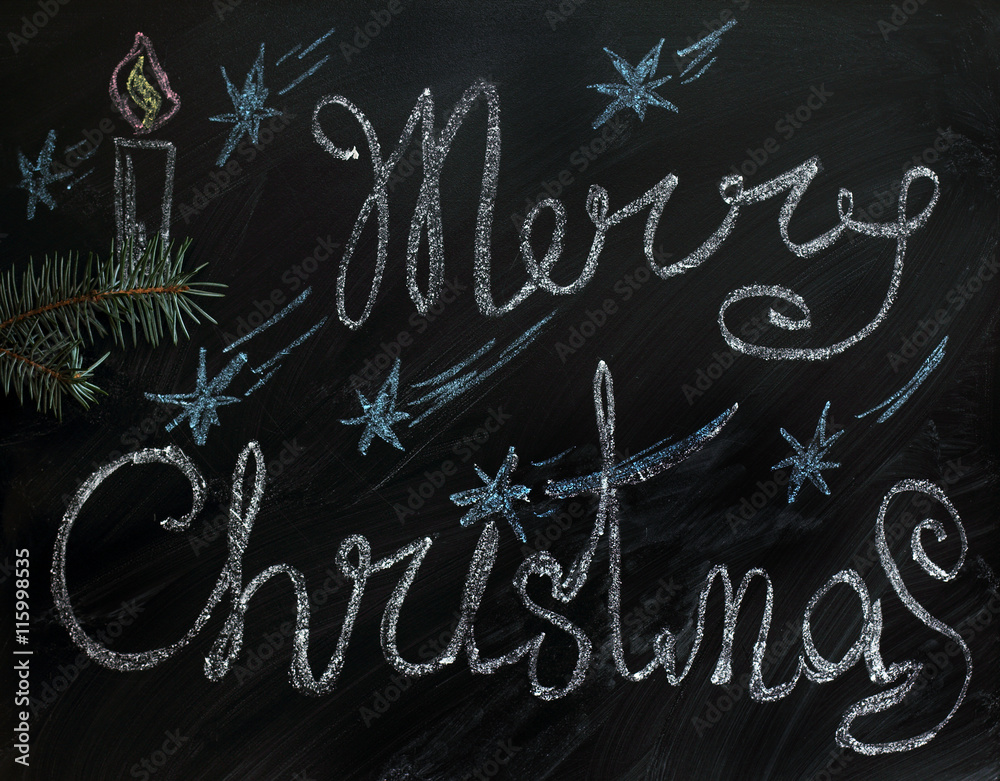 Merry
Christmas
Adobe Stock | #115998535